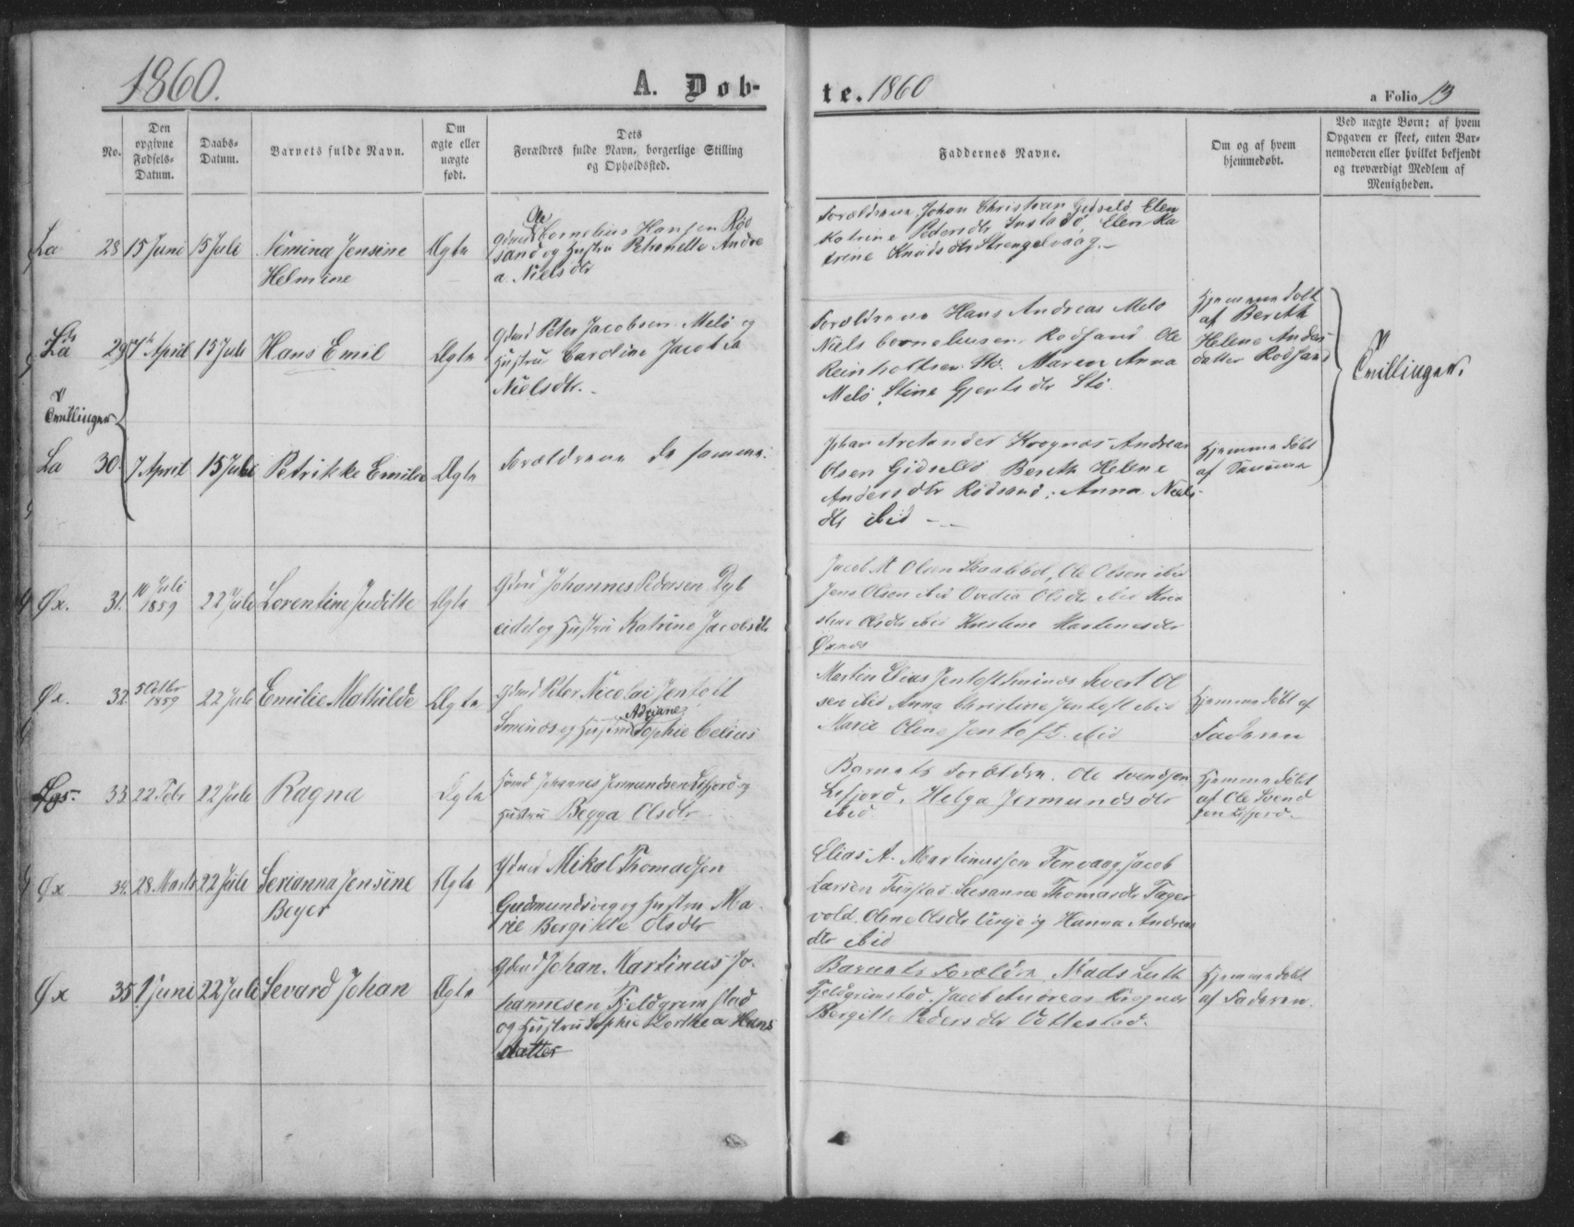 1860.
A. Døb-
te. 1860
a Folio 13
No.
Den
opgivne
Fødsels-
Datum.
Daabs-
Datum.
Barnets fulde Navn.
Om
ægte eller
uægte
født.
Dets
Forældres fulde Navn, borgerlige Stilling
og Opholdssted.
Faddernes Navne.
Om og af hvem
hjemmedøbt.
Ved uægte Børn: af hvem
Opgaven er skeet, enten Bar-
nemoderen eller hvilket bekjendt
og troværdigt Medlem af
Menigheden.
La 28 15 Juni 15 Juli Nemina Jensine
Helmine
Ægte
Ole
Gdmd Cornelius Hansen Rød
sand og Hustru Petronelle Andre
a Nielsdtr
Forældrene Johan Christian Gidselø Elen
Katrine Pedersdtr Instadø, Elen Ka
trine Knudsdtr Strengelvaag.
La 29 7 April 15 Juli Hans Emil Ægte
Gdmd Peter Jacobsen Melø og
Hustru Caroline Jacobea
Nielsdtr.
Forældrene Hans Andreas Melø
Niels Corneliusen Rødsand Ole
Reinholtsen Stø. Maren Anna
Melø, Stine Gjertsdtr Stø.
Hjemmedøbt
af Bereth
Helene Anders
datter Rødsand
Tvillinger.
Tvillinger
La 30 7 April 15 Juli Petrikke Emilie Ægte
Forældrene de samme.
Johan Arctander Krognæs Andreas
Olsen Gidselø Bereth Helene
Andersdtr Rødsand, Anna Niels
dtr ibid
Hjemmedøbt
af Samme
Øx. 31. 10 Juli
1859 22 Juli Lorentine Juditte Ægte
Gdmd Johannes Pedersen Dyb
eidet og Hustru Katrine Jacobsdtr
Jacob M Olsen Skaaltbøl, Ole Olsen ibid
Jens Olsen ibid Ovedia Olsdtr ibid Kris
stine Olsdtr ibid Kirstine Martinesdtr
Øxnæs
Øx. 32 5 Octbr
1859 22 Juli Emilie Mathilde Ægte
Gdmd Peter Nicolai Jentoft
Adriane
Sminæs og Hustru Sophie Celius
Martin Elias Jentoft Sminæs Sivert Ol
sen ibid Anna Christine Jentoft ibid
Marie Oline Jentoft ibid
Hjemmedøbt af
Faderen
33 22 Febr 22 Juli Ragna Ægte
Johannes Jermundsen Lifjord og
Hustru Begga Olsdtr
Barnets Forældre. Ole Svendsen
Lifjord, Helga Jermundsdtr
ibid.
Hjemmedøbt
af Ole Svend
sen Lifjord.
Øx 34. 28 Marts 22 Juli Serianna Jensine
Beyer
Ægte
Gdmd Mikal Thomassen
Gudmundsvig og Hustru Ma
rie Bergitte Olsdtr
Elias A. Martinussen Tenvaag, Jacob
Larsen Susanne Thomasdtr Fager
vold. Oline Olsdtr Vinje og Hanna Andreas
dtr ibid
Øx 35 1 Juni 22 Juli Sevard Johan Ægte
Gdmd Johan Martinus Jo-
hannesen Fjeldgrimstad
og Hustru Sophie Dorthea Hans
datter
Barnets Forældre Mads Luth
Fjeldgrimstad. Jacob Andreas Krognæs
Bergitte Pedersdtr Vottestad.
Hjemmedøbt
af Faderen.